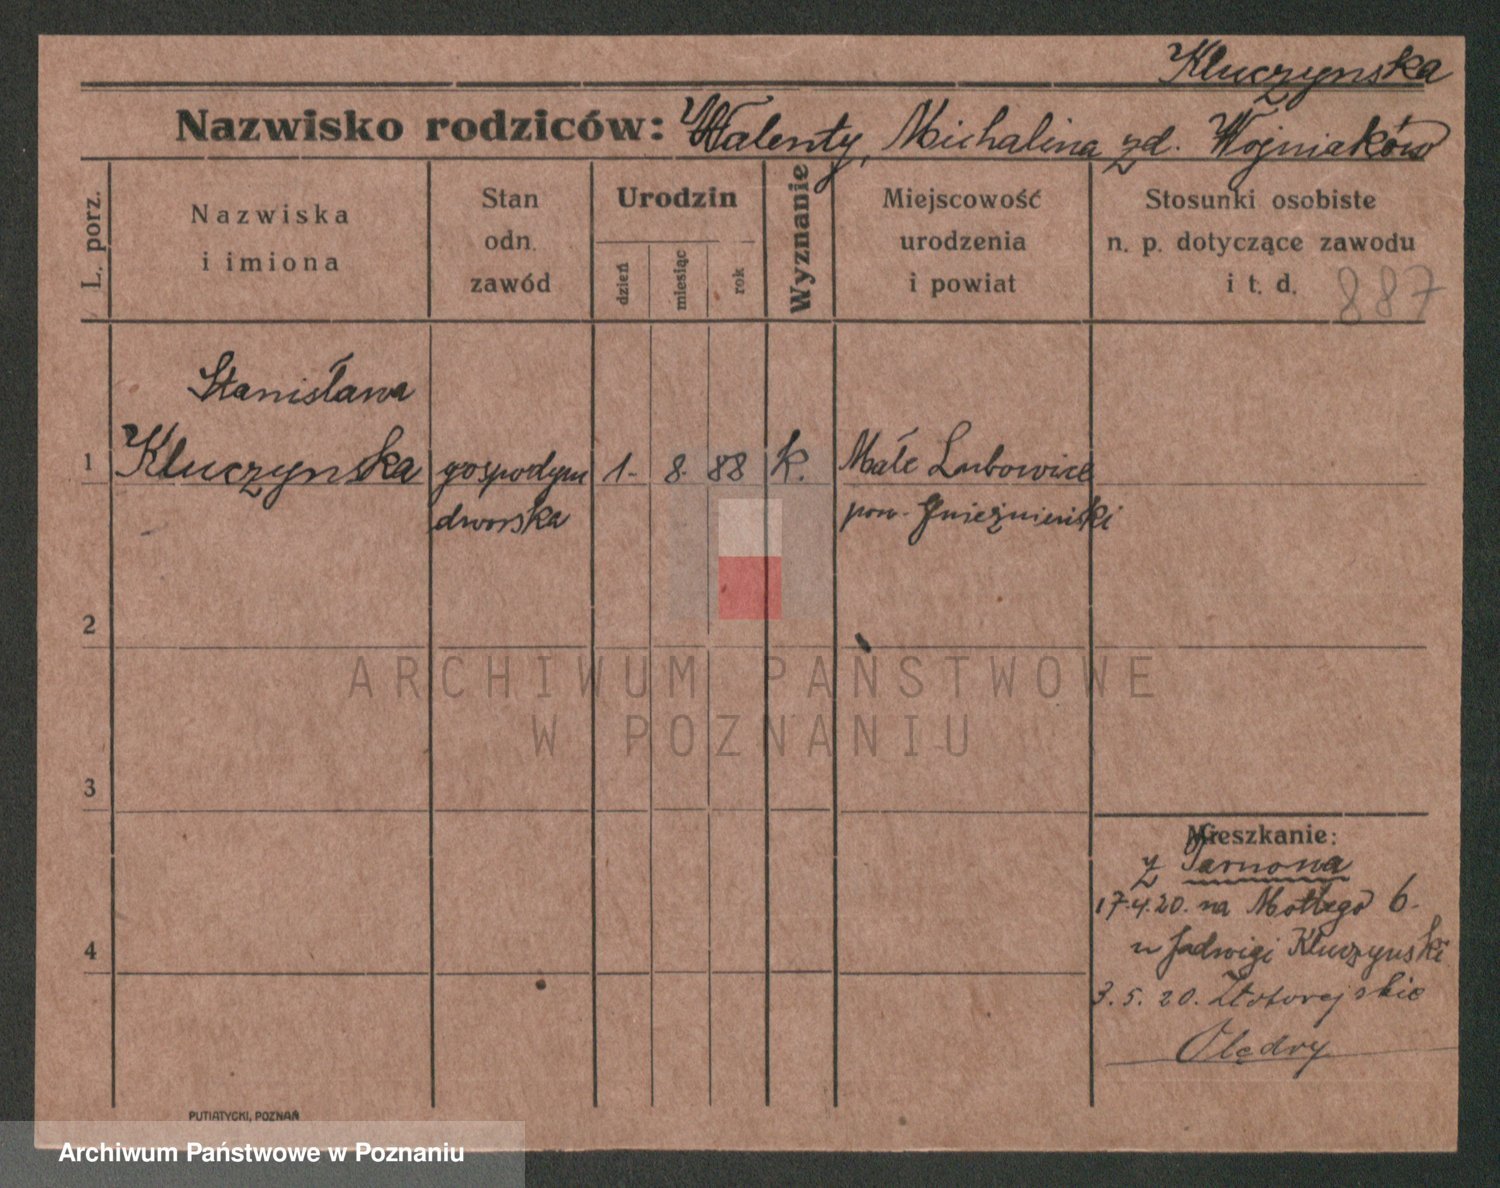 Kluczynska
Nazwisko rodziców: Walenty, Michalina zd. Wojniaków
L. porz.
Nazwiska
i imiona
Stan
odn.
zawód
Urodzin
dzień
miesiąc
rok
Wyznanie
Miejscowość
urodzenia
i powiat
Stosunki osobiste
n. p. dotyczące zawodu
i t. d.
887
Stanisława
1 Kluczynska gospodyni 1. 8. 88 k. Małe Lubowice
dworska pow. Gnieźnieński
2
ARCHIWUM PAŃSTWOWE
W POZNANIU
3
Mieszkanie:
z Tarnowa
17.4.20. na 6.
4
u Jadwigi Kluczynski
3.5.20. Złotoryjskie
Olędry
PUTIATYCKI, POZNAŃ
Archiwum Państwowe w Poznaniu